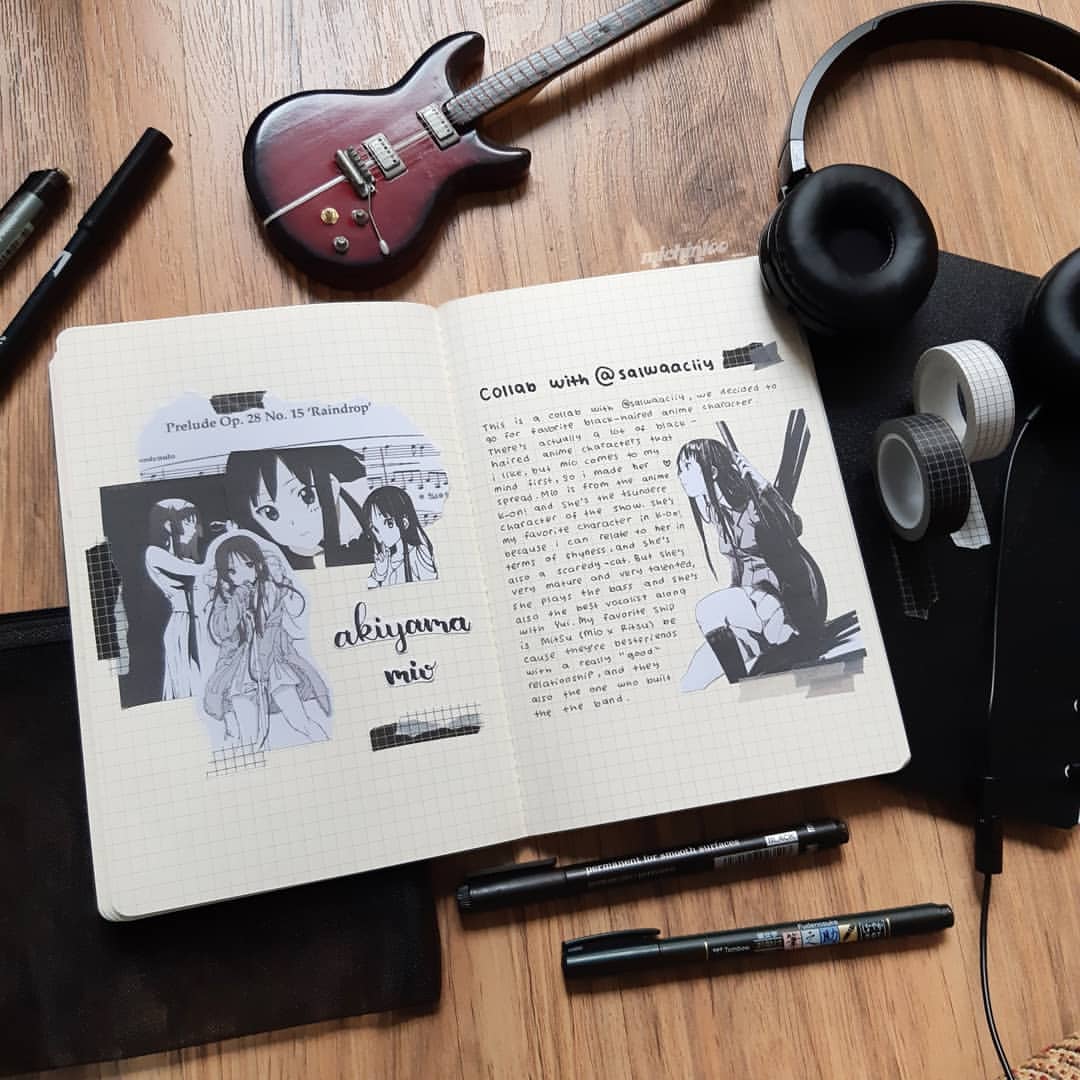 michiniko_
Prelude Op. 28 No. 15 'Raindrop'
akiyama
mio
Collab with @salwaacliy
This is a collab with @salwaacliy, we decided to
go for favorite black-haired anime character.
There's actually a lot of black-
haired anime characters that
i like, but mio comes to my
mind first, so i made her ♡
spread. Mio is from the anime
k-on! and she's the tsundere
character of the show. she's
my favorite character in k-on!
because i can relate to her in
terms of shyness, and she's
also a scaredy-cat. But she's
very mature and very talented,
she plays the bass and she's
also the best vocalist along
with Yui. My favorite ship
is MitSu (Mio x Ritsu) be
cause they're bestfriends
with a really "good"
relationship, and they
also the one who built
the the band.
permanent for smooth surfaces
BLACK
Tombow
Fudenosuke